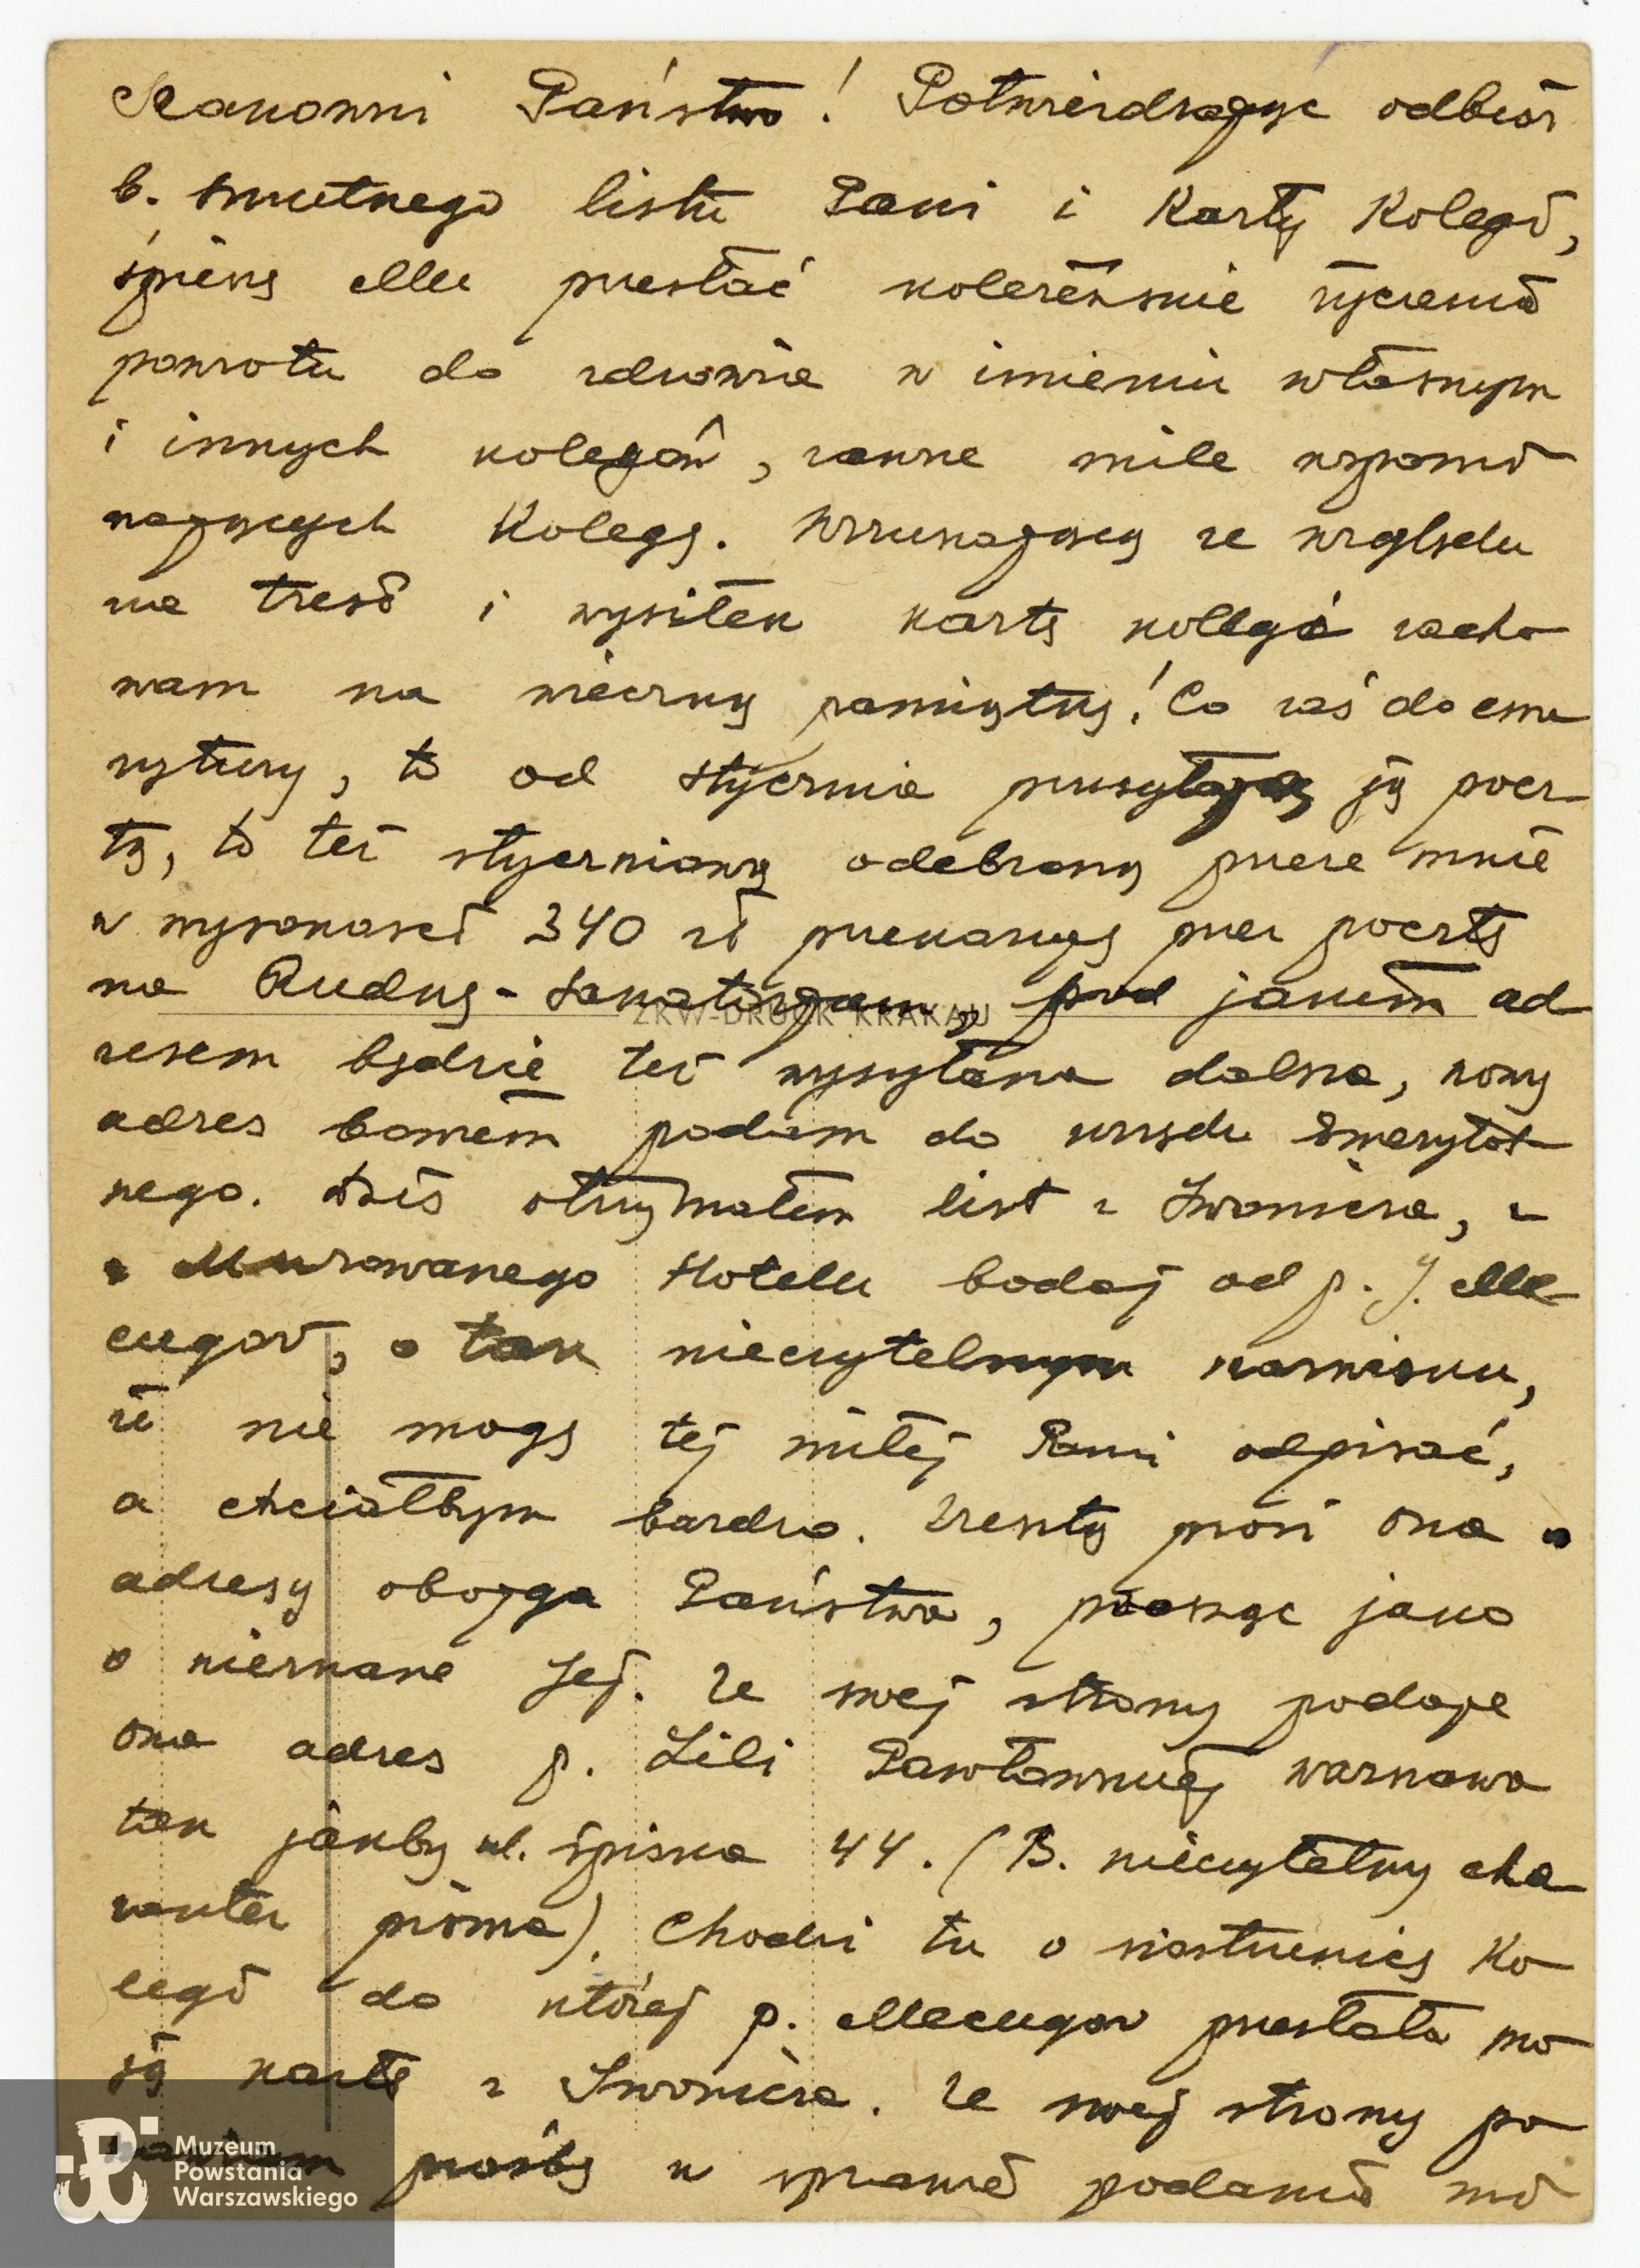 Szanowni Państwo! Potwierdzając odbiór
b. smutnego listu Pani i Karty Kolegi,
śpieszę Mu przesłać koleżeńskie życzenia
powrotu do zdrowia w imieniu własnym
i innych kolegów, zawsze mile wspomi
nających Kolegę. Wzruszającą ze względu
na treść i wysiłek kartę kolegi zacho
wam na wieczną pamiątkę! Co zaś do eme
rytury, to od stycznia przesyłają ją pocz
tą, to też styczniową odebraną przeze mnie
w wysokości 340 zł przekazuję przez pocztę
na Rudkę-Sanatorium, pod jakim ad
ZKW-DRUCK KRAKAU
resem będzie też wysyłana dalsza, nowy
adres bowiem podam do urzędu Emerytal
nego. Dziś otrzymałem list z Iwonicza, z
Murowanego Hotelu bodaj od p. J. Me
cugow, o tak nieczytelnym nazwisku,
że nie mogę tej miłej Pani odpisać,
a chciałbym bardzo. Zresztą prosi ona o
adresy obojga Państwa, pisząc jako
o nieznane Jej. Ze swej strony podaje
ona adres p. Lili Pawłowskiej Warszawa
tak jakby ul. Spiska 44. (B. nieczytelny cha
rakter pisma). Chodzi tu o siostrzenicę Ko
legi do której p. Mecugow przesłała mo
ją kartę z Iwonicza. Ze swej strony po
nawiam prośbę w sprawie podania mi
Muzeum
Powstania
Warszawskiego